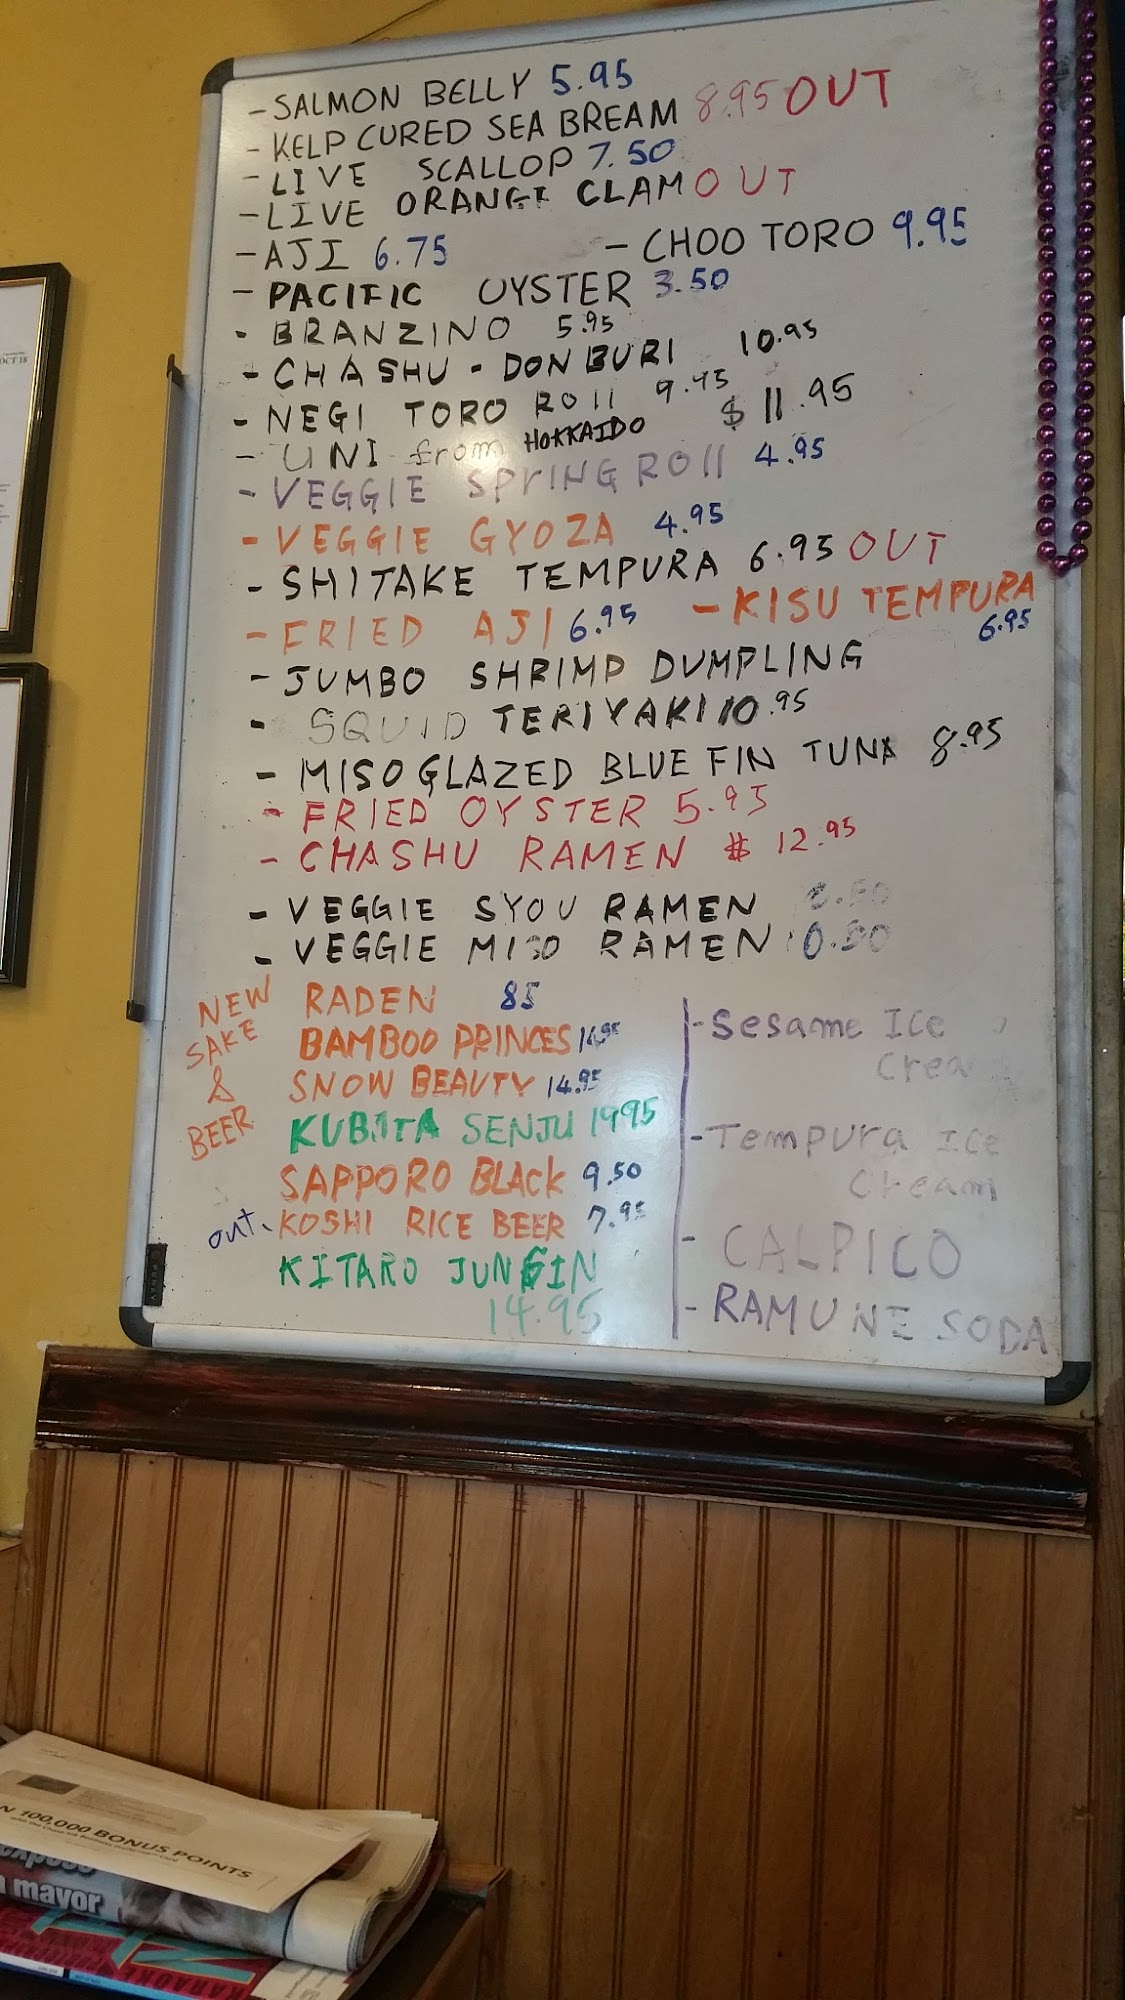 - SALMON BELLY 5.95
- KELP CURED SEA BREAM 8.95 OUT
- LIVE SCALLOP 7.50
- LIVE ORANGE CLAM OUT
- AJI 6.75 - CHOO TORO 9.95
- PACIFIC OYSTER 3.50
- BRANZINO 5.95
- CHASHU - DONBURI 10.95
- NEGI TORO ROll 9.95
- UNI from HOKKAIDO $11.95
- VEGGIE SPrING ROll 4.95
- VEGGIE GYOZA 4.95
- SHITAKE TEMPURA 6.95 OUT
- FRIED AJI 6.95 - KISU TEMPURA
6.95
- JUMBO SHRIMP DUMPLING
- SQUID TERIYAKI 10.95
- MISO GLAZED BLUE FIN TUNA 8.95
- FRIED OYSTER 5.95
- CHASHU RAMEN $12.95
- VEGGIE SYOU RAMEN
- VEGGIE MISO RAMEN
NEW SAKE & BEER
RADEN 85
BAMBOO PRINCES 14.95
SNOW BEAUTY 14.95
KUBOTA SENJU 19.95
SAPPORO BLACK 9.50
out. KOSHI RICE BEER 7.95
KITARO JUNGIN
14.95
- Sesame Ice
Crea
- Tempura Ice
Cream
- CALPICO
- RAMUNE SODA
OCT 18
N 100,000 BONUS POINTS
mayor